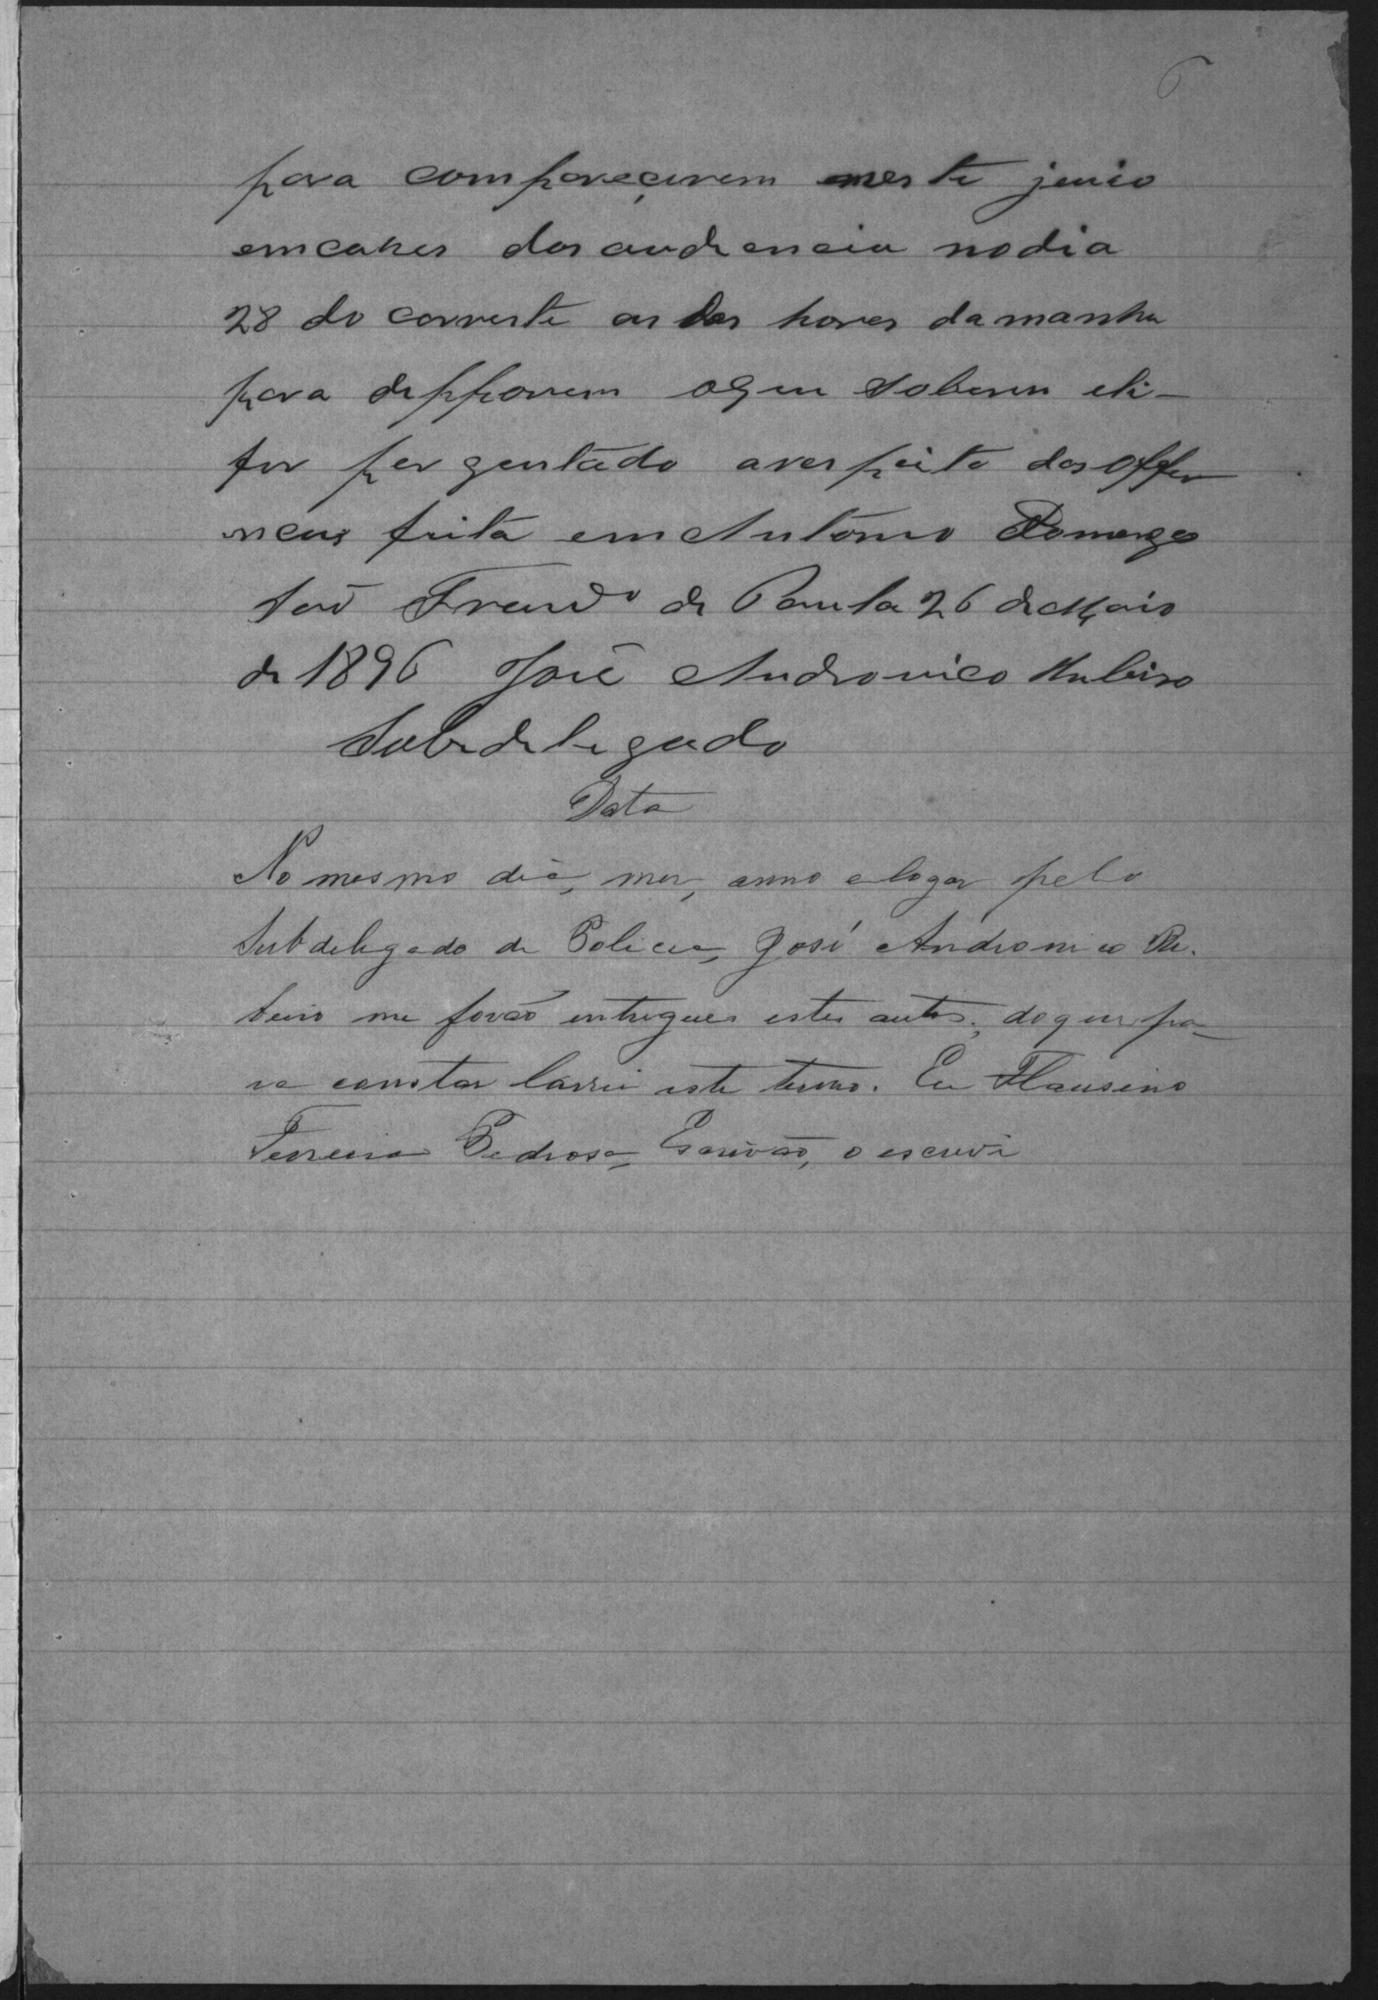 6
para compareçerem neste juiso
em cazas das audiencia no dia
28 do corrente as des horas da manha
para depporem o que soberem eli-
for perguntado a respeito das offen
ncas feita em Antonio Domenges
São Francº de Paula 26 de Maio
de 1896 José Andronico Rubeiro
Subdelegado
Data
No mesmo dia, mes, anno e logar pelo
Subdelegado de Policia, José Andronico Ri-
beiro me forão entregues estes autos; do que pa-
ra constar lavrei este termo. Eu Flausino
Ferreira Pedrosa, Escrivão, o escrevi